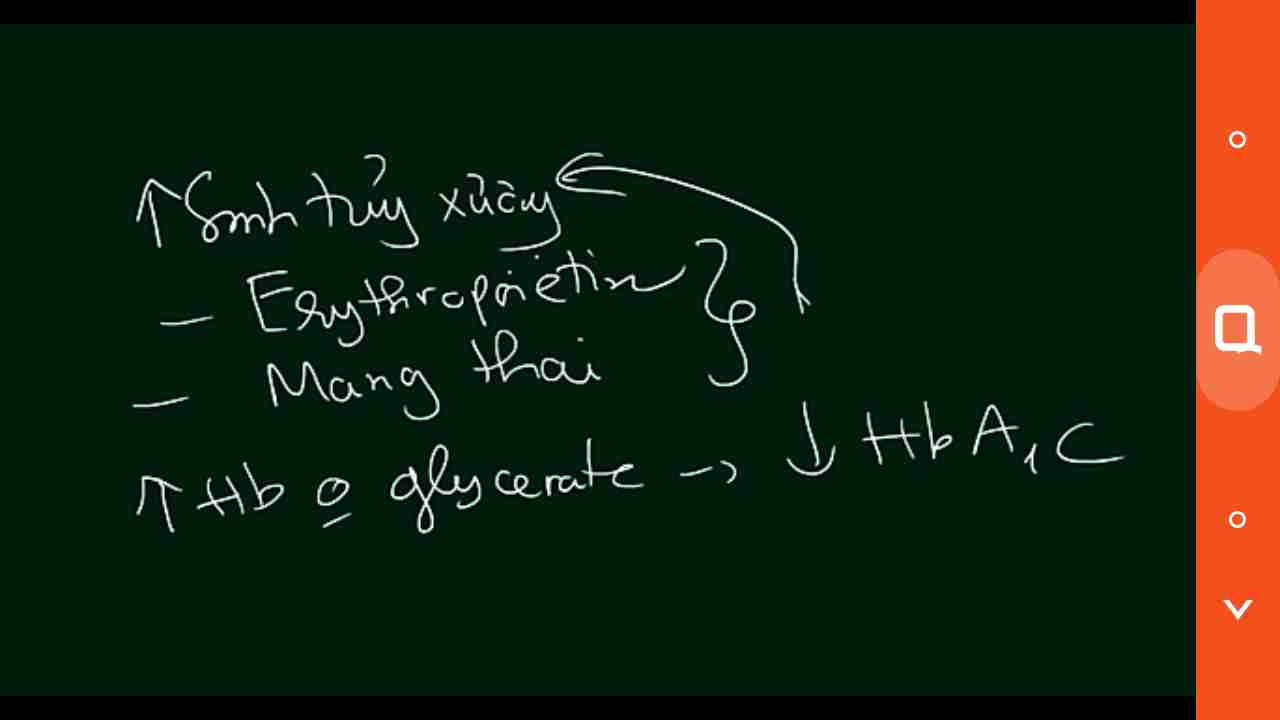 ↑ Sinh tủy xương
– Erythropoietin
– Mang thai
↑ Hb o glycerate → ↓ HbA1C